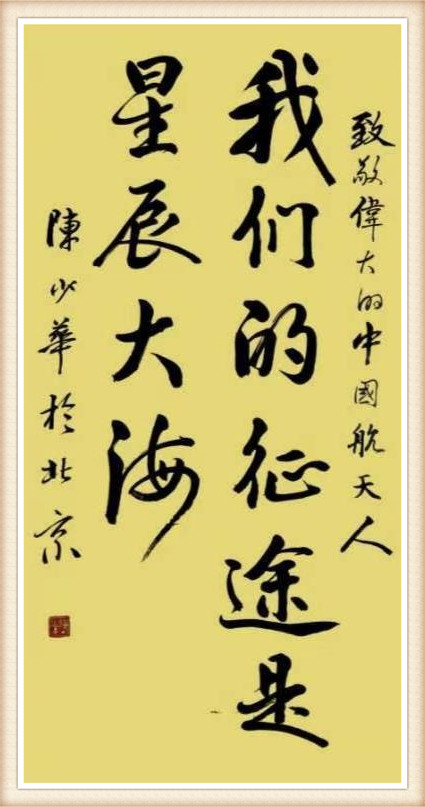 致敬偉大的中國航天人
我们的征途是
星辰大海
陳少華於北京